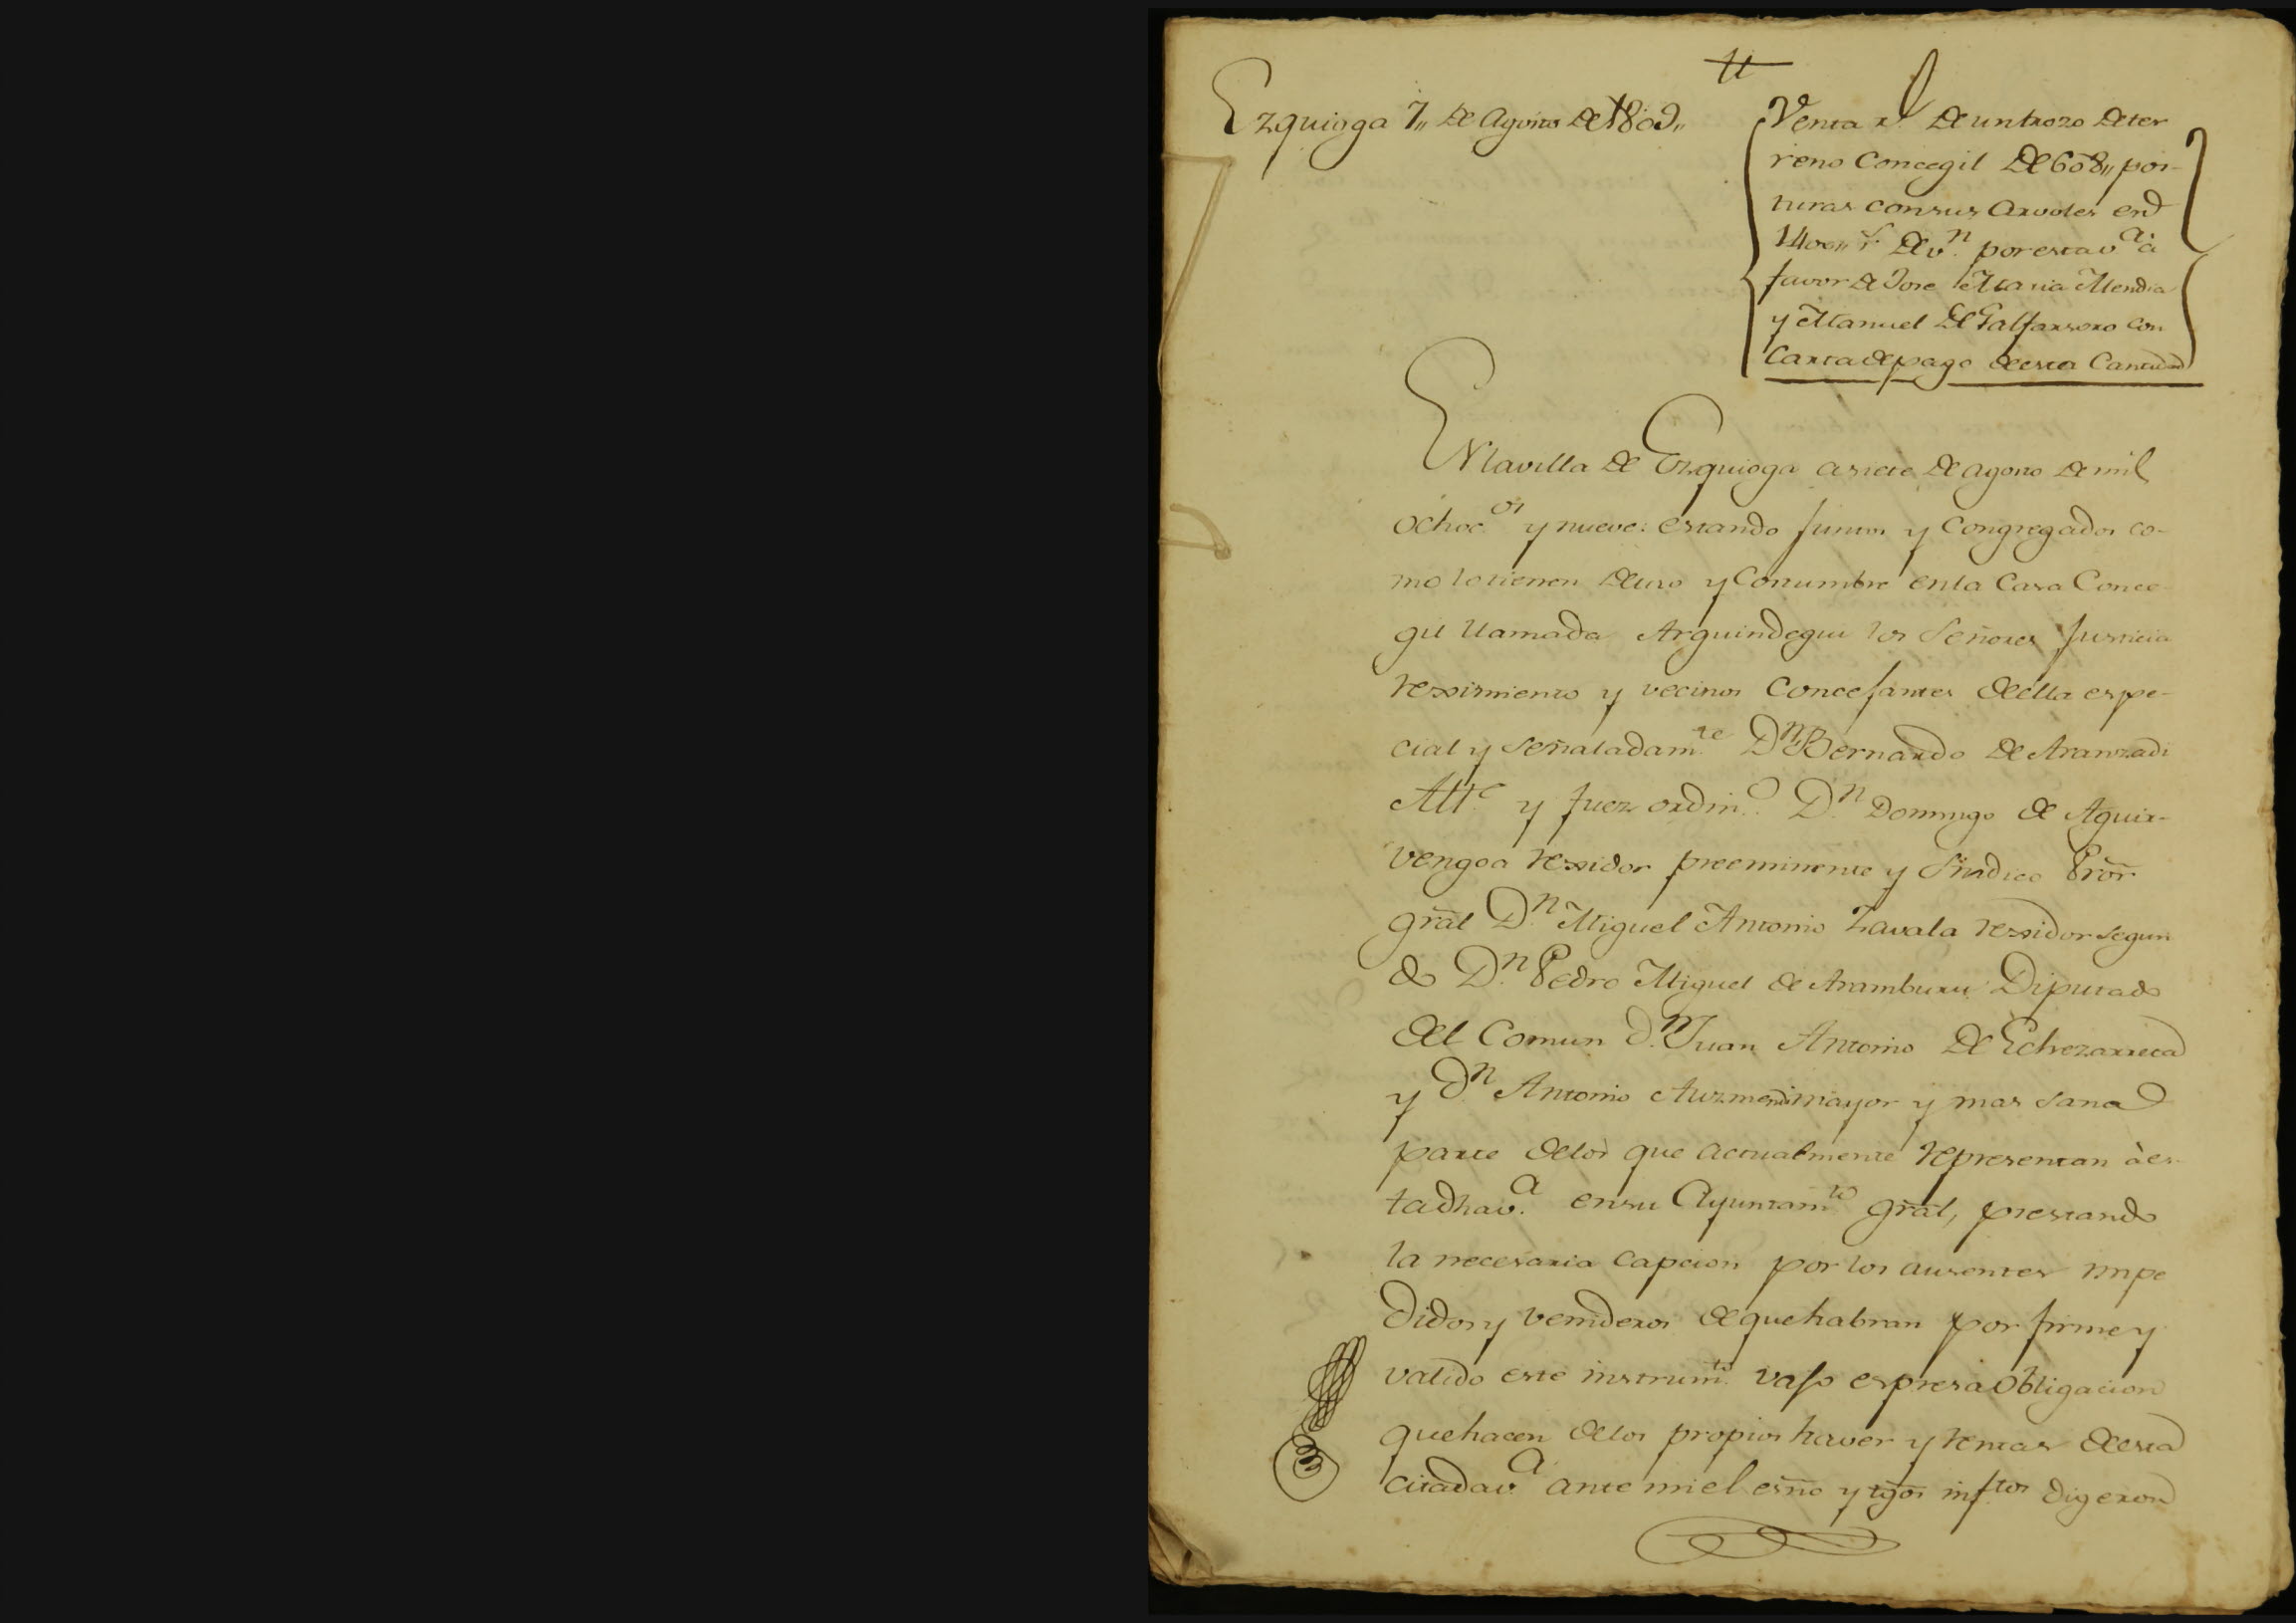 Ezquioga 7,, de Agosto de 1809,,
Venta rl. de un trozo de ter
reno Concegil de 608,, pos-
turas con sus Arvoles en
1400,, rs. de vn. por esta va. à
favor de Jose Maria Mendia
y Manuel de Galfarsoro con
Carta de pago de esta Cantidad
EN la villa de Ezquioga a siete de agosto de mil
ochocos. y nueve: estando juntos y Congregados co-
mo lo tienen de uso y Costumbre en la Casa Conce-
gil llamada Arguindegui los Señores Justicia
rexximiento y vecinos Concejantes de ella espe-
cial y señaladamte. Dn. Bernardo de Aranzadi
Alle. y Juez ordino. Dn. Domingo de Aguir-
vengoa rexidor preeminente y Sindico Pror
gral Dn. Miguel Antonio Zavala rexidor segun
do Dn. Pedro Miguel de Aramburu Diputado
del Comun Dn. Juan Antonio de Echezarreta
y Dn. Antonio Auzmendi mayor y mas sana
parte de los que actualmente representan à es-
ta dha va. en su Ayuntamto. gral, prestando
la necesaria capcion por los ausentes impe
didos y venideros de que habran por firme y
valido este instrumto. vajo espresa obligacion
que hacen de los propios haver y rentas de esta
citada va. ante mi el esño y tgos infrtos digeron